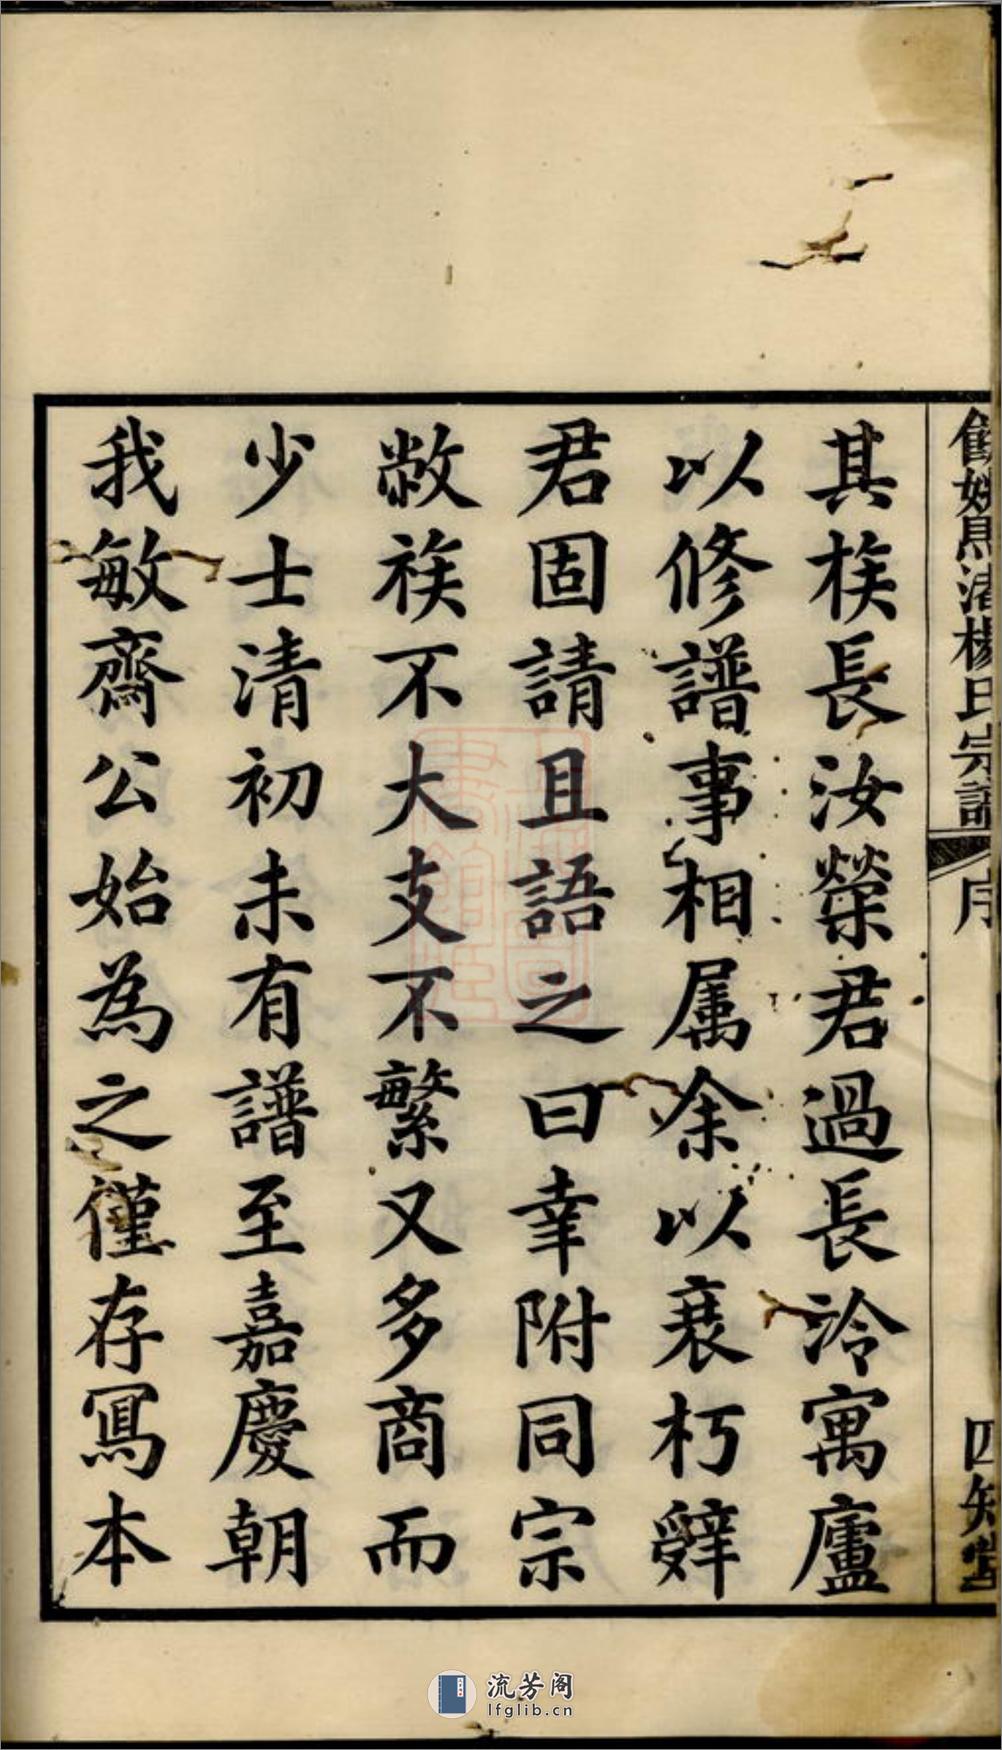 餘姚馬渚楊氏宗譜 序 四知堂
其族長汝榮君過長泠寓廬
以修譜事相属余以衰朽辭
君固請且語之曰幸附同宗
敝族不大支不繁又多商而
少士清初未有譜至嘉慶朝
我敏齋公始為之僅存寫本
流芳阁
lfglib.cn